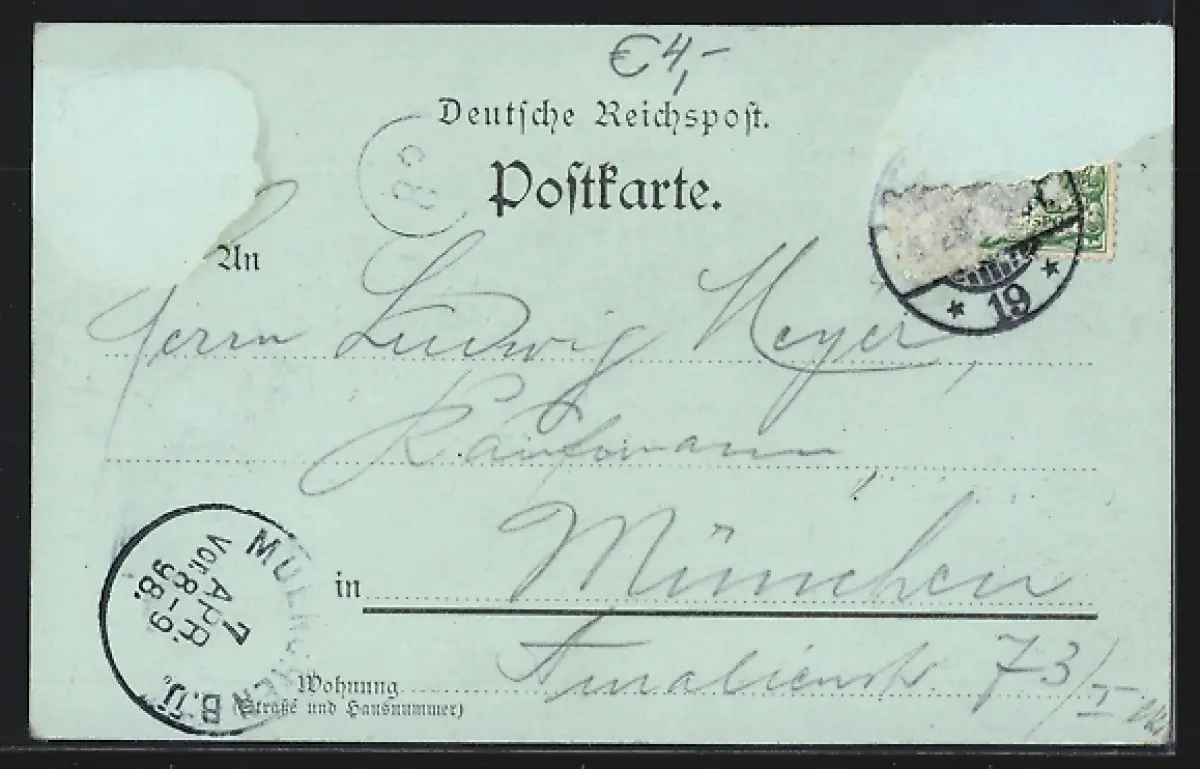 €4,-
Deutsche Reichspost.
Postkarte.
An
Herrn Ludwig Meyer,
Kaufmann,
in München
Wohnung Amalienstr. 73/I
(Straße und Hausnummer)
MÜNCHEN B.Ü.
7
APR.
Vor. 8-9
98.
* 19 *